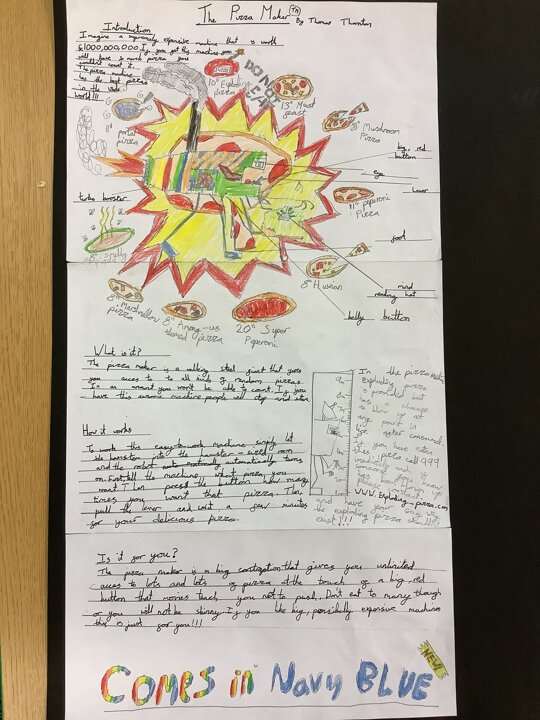 The Pizza Maker TM By Thomas Thornton
Introduction
Imagine a supremely expensive machine that is worth
£1000,000,000 If you got this machine you
will have so much pizza you
couldnt count it.
The pizza machine
has the best pizzas
in the whole
world!!!
DO NOT EAT
10" Exploding pizza
13" Meat feast
8" Mushroom Pizza
big, red button
eye
lever
11" peperoni Pizza
food
mind reading hat
8" Hawian
belly button
20" Super Peperoni
8" Among-us themed pizza
8" Marshmellow pizza
8" Smelly pizza
turbo booster
11" portal pizza
What is it?
The pizza maker is a walking steel giant that gives
you acces to all kinds of random pizzas
In an amount you won't be able to count. If you
have this machine people will stop and stare
How it works
To work this easy-to-work machine simply let
the hamster into the hamster-sized room
and the robot automatically turns
on. First, tell the machine which pizza you
want. Then press the button how many
times you want that pizza. Then,
pull the lever and wait a few minutes
for your delicious pizza
In the pizza maker
Exploding pizza
is provided but
has a chance
to blow up at
any point in
time after consumed.
If you have eaten
this pizza call 999
www.Exploding-pizza.com
and have your say why
the exploding pizza shouldn't
exist!!!
Is it for you?
The pizza maker is a big contraption that gives you unlimited
acces to lots and lots of pizza at the touch of a big, red
button that movies teach you not to push. Don't eat to many though
or you will not be skinny. If you like big, possibly expensive machines
this is just for you!!!
COMES in Navy BLUE
NEW!